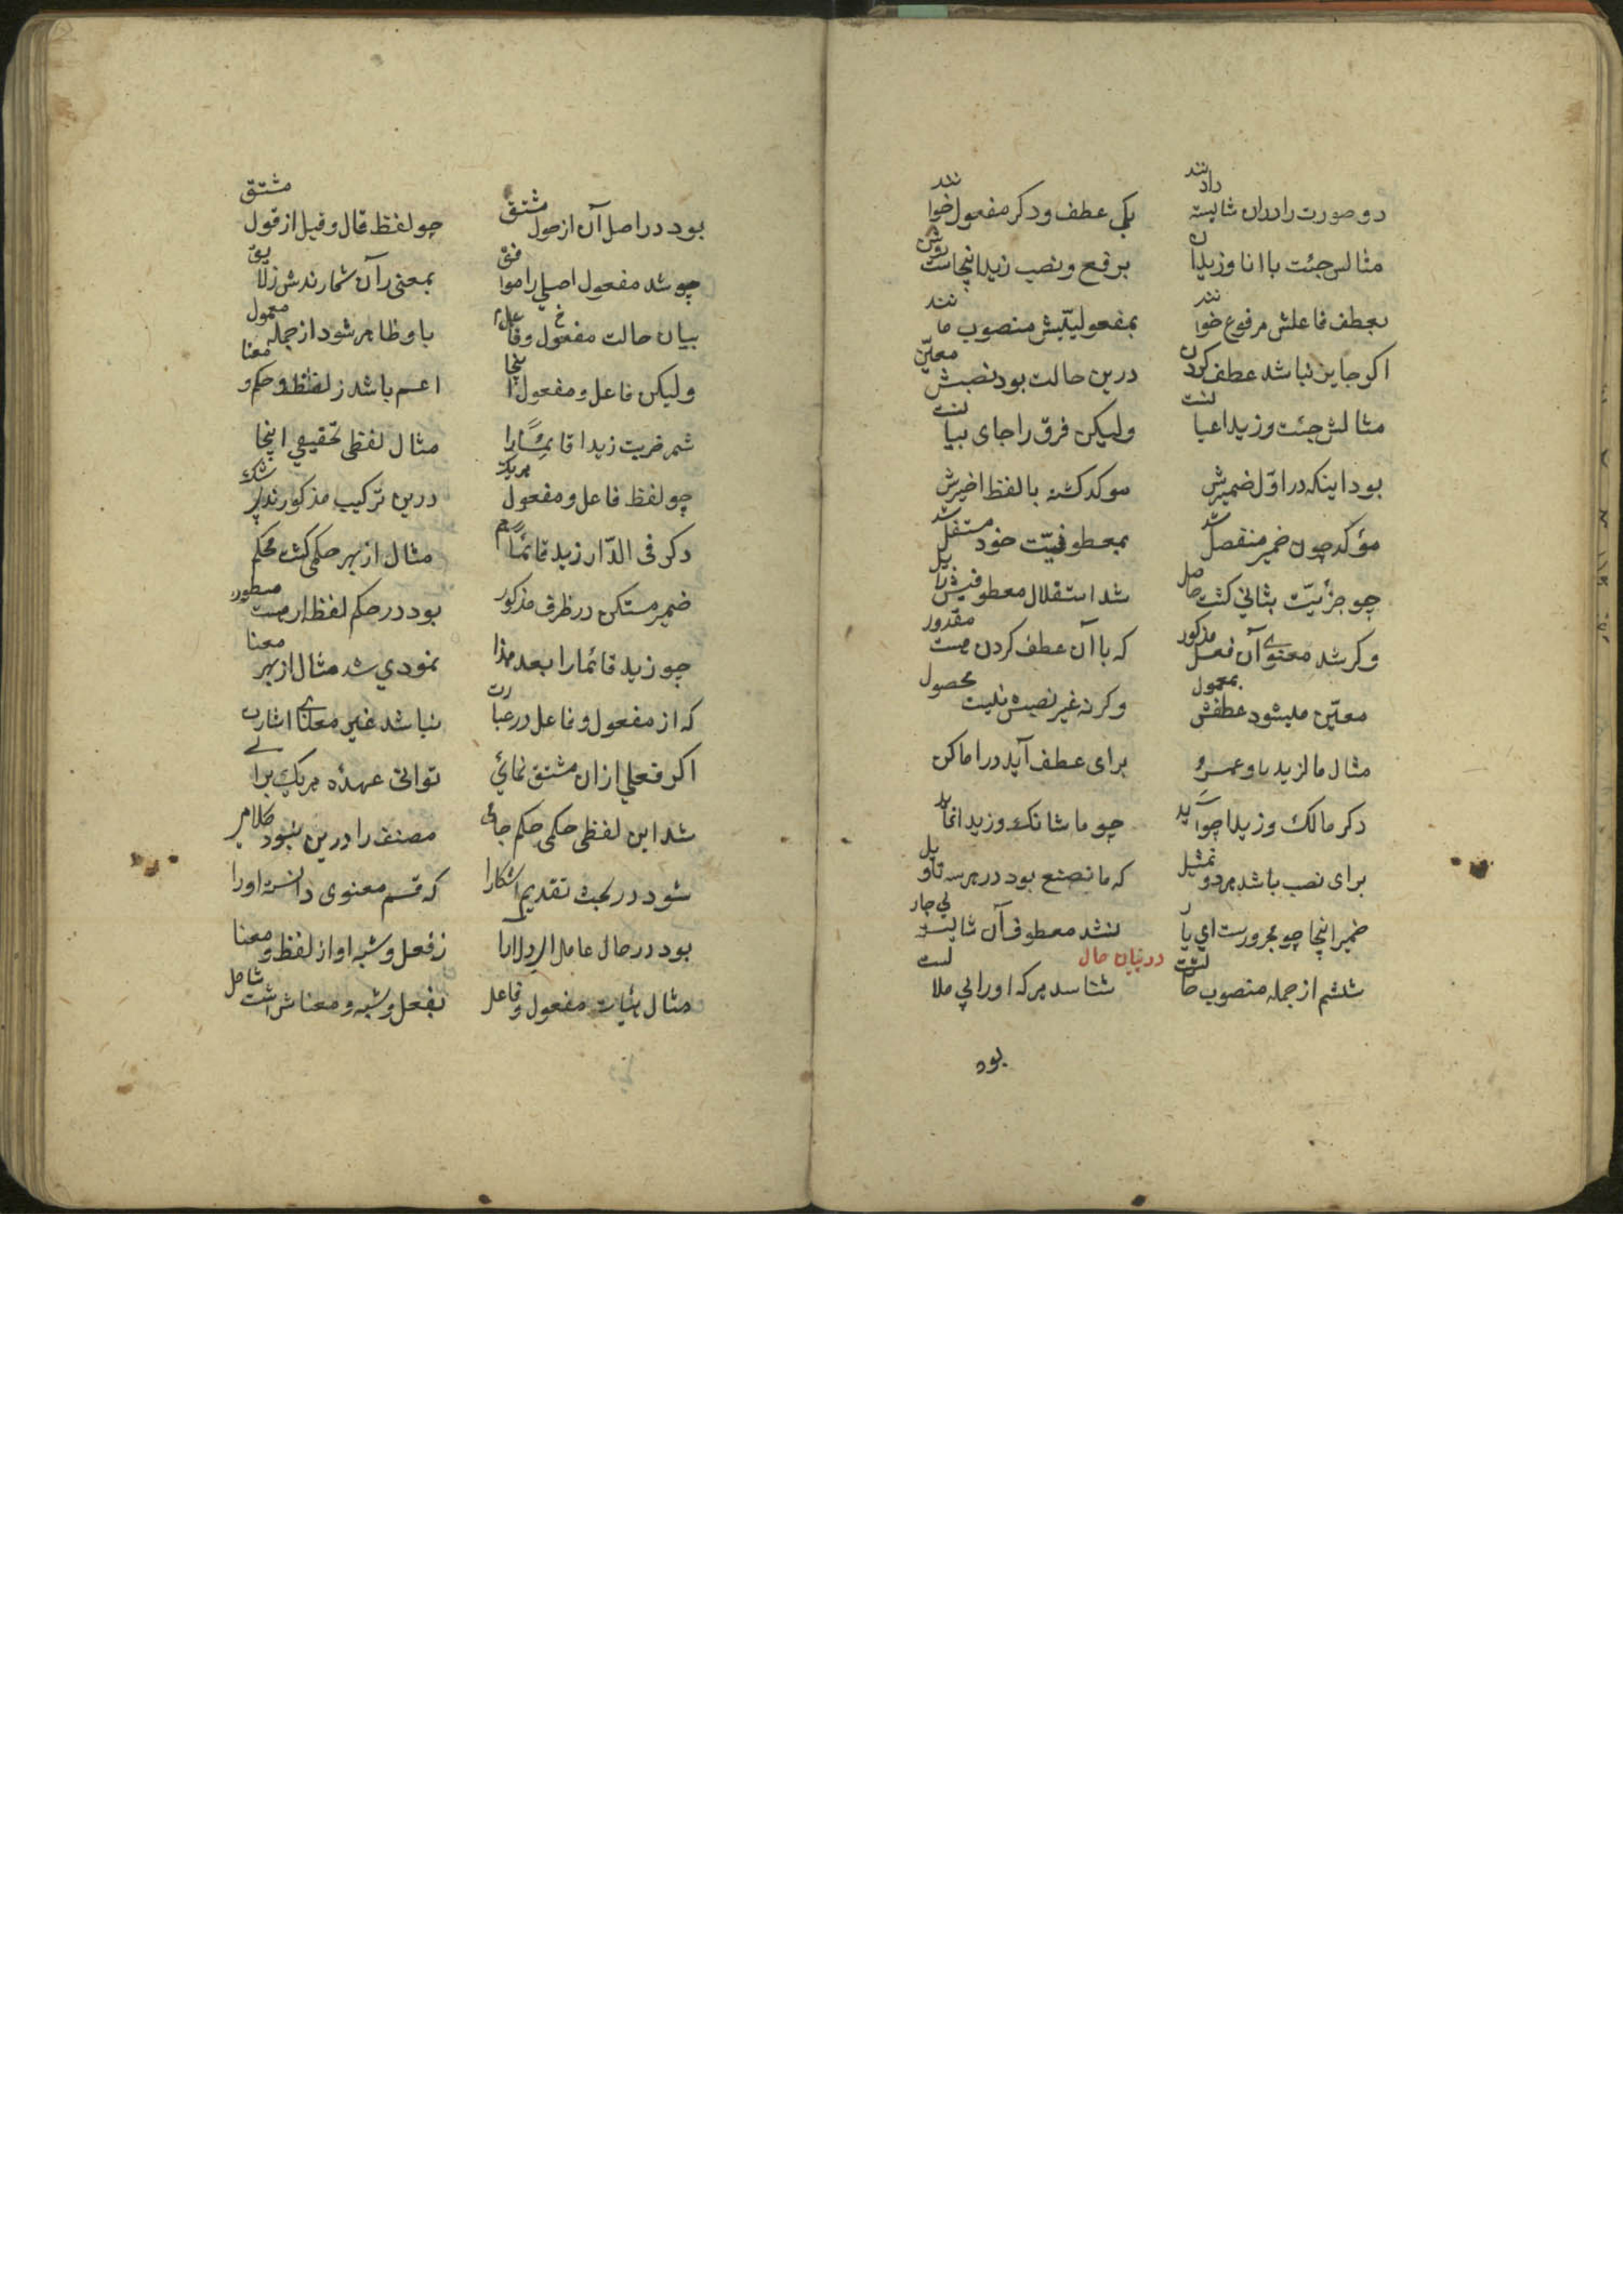 دو صورت را دران شایسته دانند یکی عطف و دکر مفعول خوانند
مثالش جئت با انا و زیدا برفع و نصب زید اینجاست
بعطف فاعلش مرفوع خوانند بمفعولیتش منصوب مانند
اکر جایز نباشد عطف کردن درین حالت بود نصبش معین
مثالش جئت و زیدا عیانست ولیکن فرق را جای بیانست
بود اینکه در اول ضمیرش موکد کشته با لفظ اخیرش
مؤکد چون ضمیر منفصل شد بمعطوفیت خود مستقل شد
چو جزئیت بثانی کشت حاصل شد استقلال معطوفیش زایل
وکر شد معنوی آن فعل مذکور که با آن عطف کردن هست مقدور
معین میشود عطفش بمعمول وکرنه غیر نصبش نیست محصول
مثال ما لزید با و عمرو برای عطف آید در اماکن
دکر مالک و زیدا چو آید چو ما شانک و زیدا نماید
برای نصب باشد هر دو تمثیل که ما تصنع بود در هر سه تاویل
ضمیر اینجا چو مجرورست ای یار نشد معطوف آن شایسته بی جار
در بیان حال
ششم از جمله منصوب حالست شناسد هر که او را بی ملالست
بود
بود در اصل آن از حول مشتق چو لفظ قال و قیل از قول مشتق
چو شد مفعول اصلی را موافق بمعنی رآن شمارندش ز لایق
بیان حالت مفعول و فاعل باو ظاهر شود از جمله معمول
ولیکن فاعل و مفعول اینجا اعم باشد ز لفظ و حکم و معنا
شمر ضربت زیدا قائما را مثال لفظی تحقیقی اینجا
چو لفظ فاعل و مفعول هریک درین ترکیب مذکورند بیشک
دکر فی الدار زید قائما هم مثال از بهر حکمی کشت محکم
ضمیر مستکن در ظرف مذکور بود در حکم لفظ ار هست مسطور
چو زید قائما را بعد هذا نمودی شد مثال از بهر معنا
که از مفعول و فاعل در عبارت نباشد غیر معنای اشارت
اکر فعلی ازان مشتق نمائی توانی عهده هریک برآئی
شد این لفظی حکمی حکم جائی مصنف را درین نبود کلامی
شود در بحث تقدیم آشکارا که قسم معنوی دانسته او را
بود در حال عامل ز فعل و شبه او از لفظ و معنا
مثال هیات مفعول و فاعل بفعل و شبه و معناش است شامل